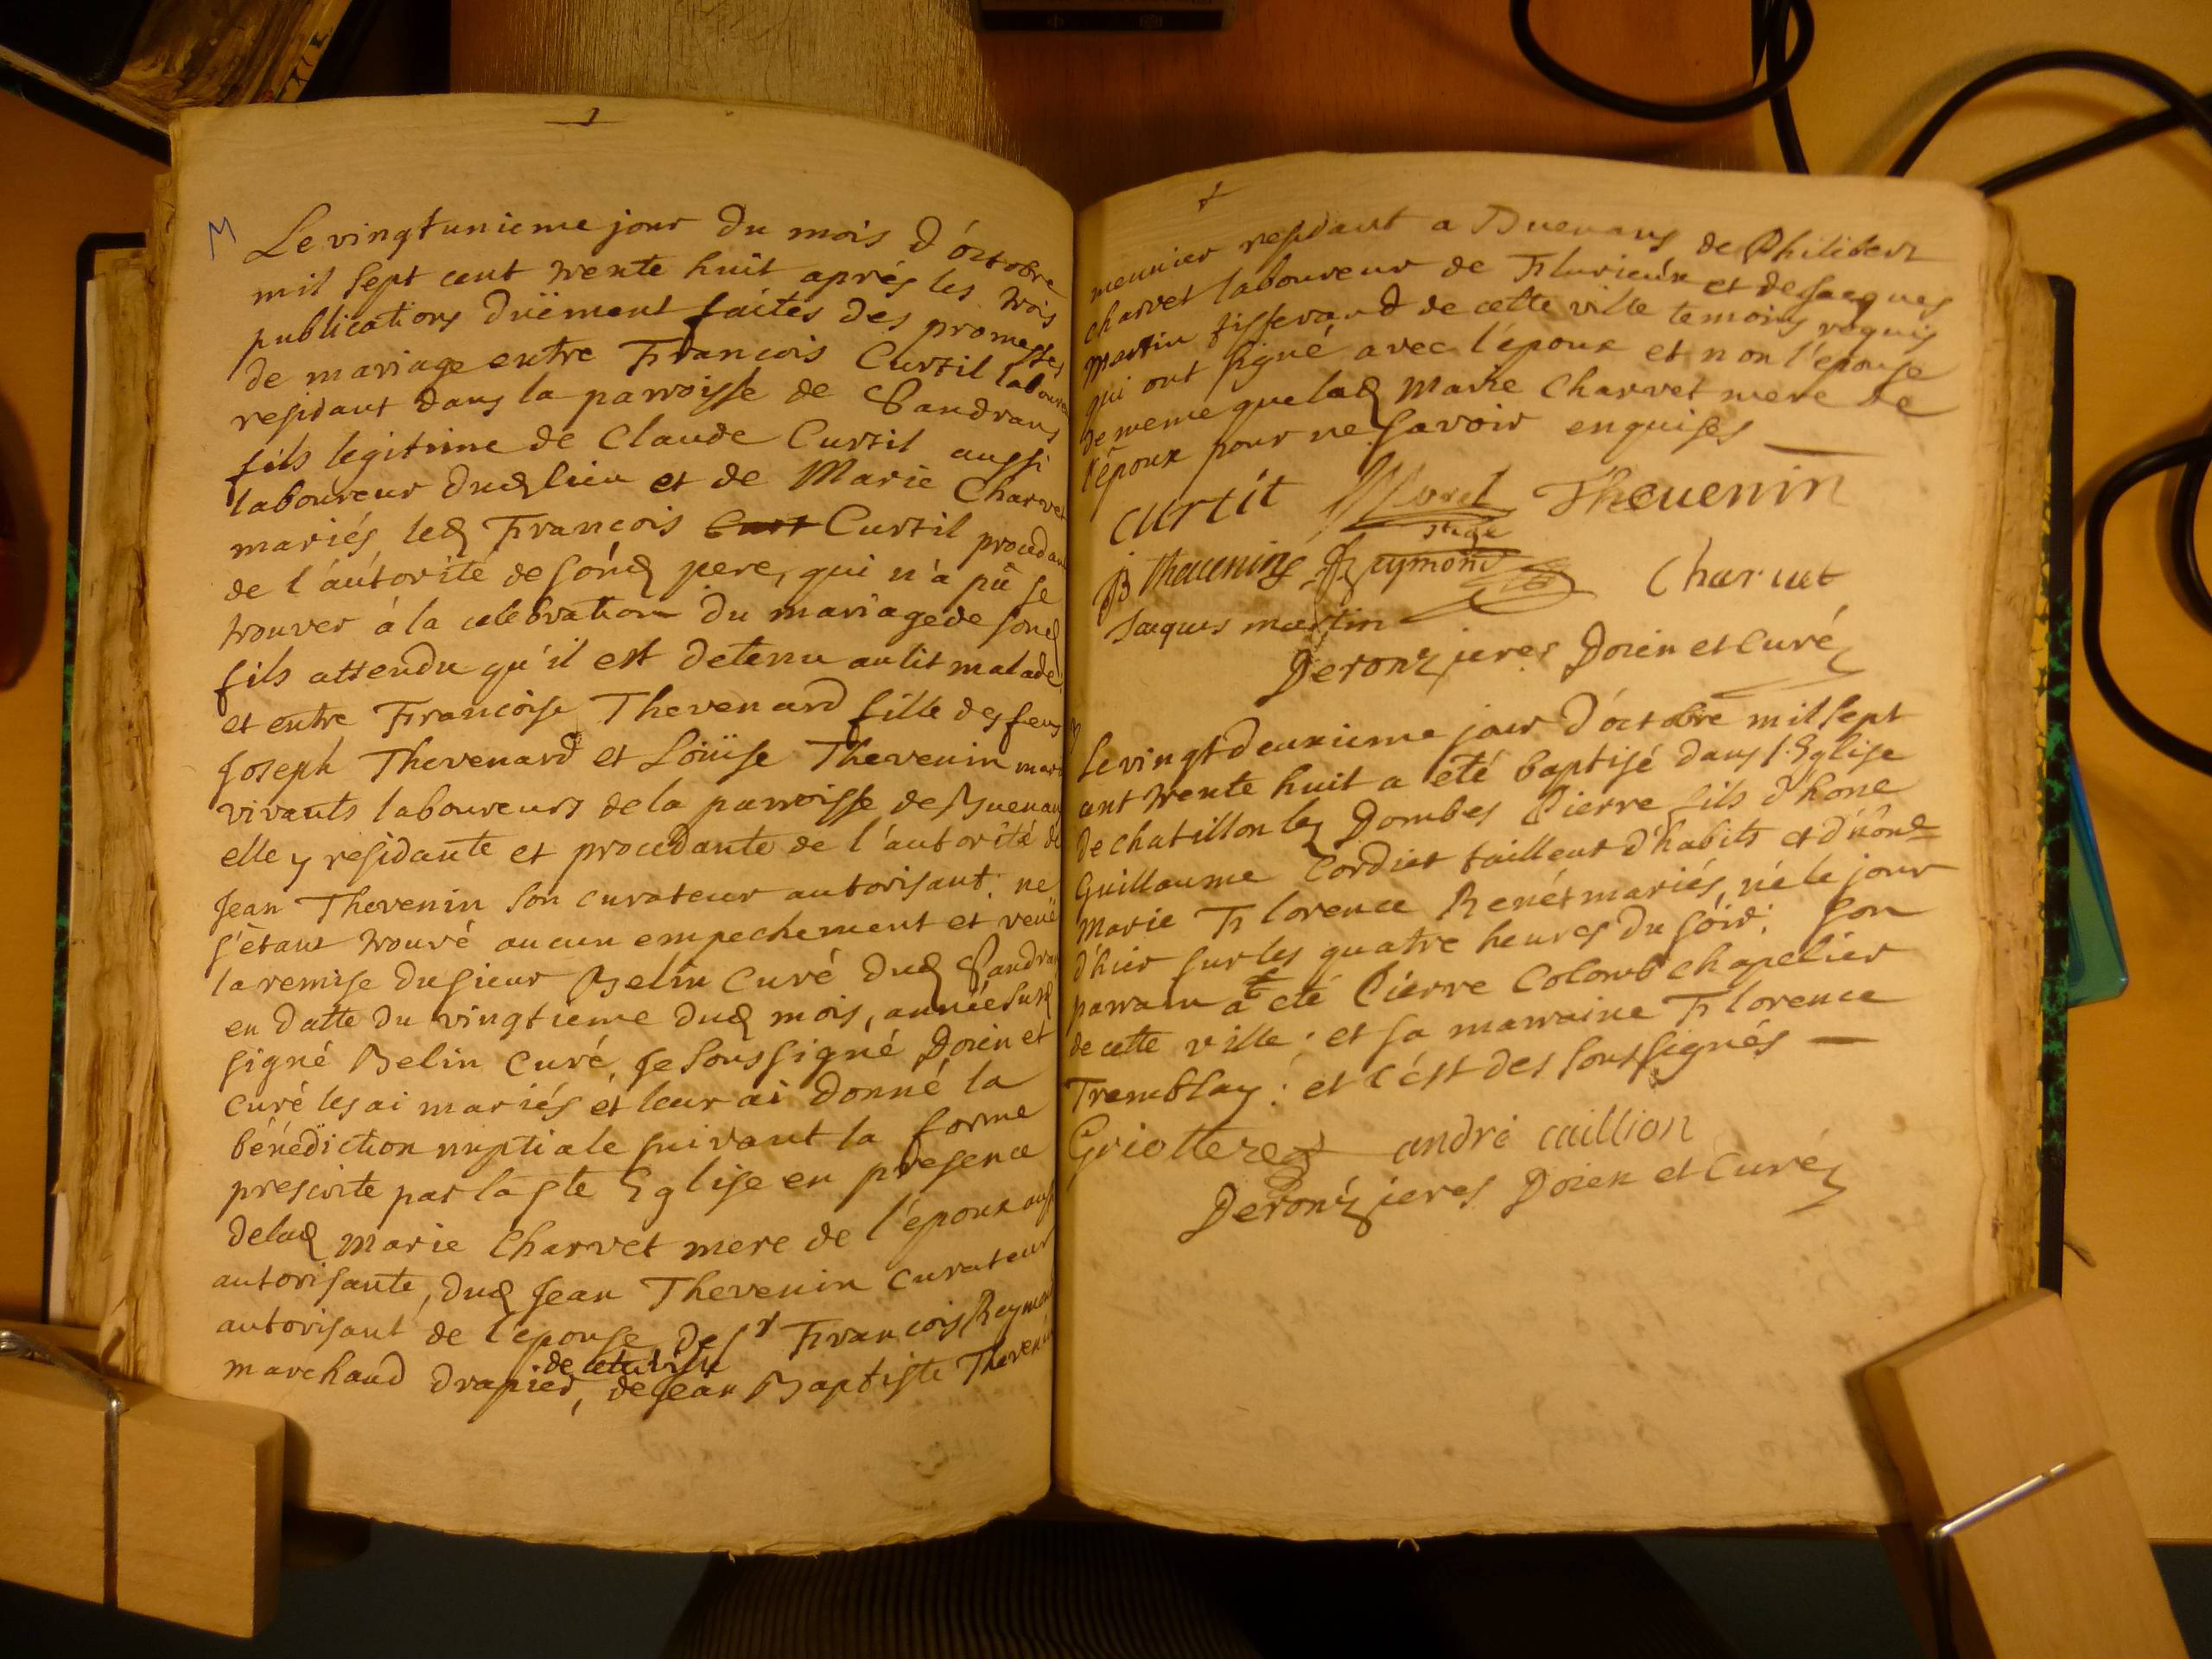 M
Le vingtunieme jour du mois d'octobre
mil sept cent trente huit aprés les trois
publications düement faites des promesses
de mariage entre Francois Curtil laboureur
residant dans la parroisse de Sandrans
fils legitime de Claude Curtil aussi
laboureur dud lieu et de Marie Charvet
mariés, led Francois Curt Curtil procedant
de l'autorité de sond pere, qui n'a pû se
trouver à la celebration du mariage de sond
fils attendu qu'il est detenu au lit malade
et entre Francoise Thevenard fille des feus
Joseph Thevenard et Loüise Thevenin mariés
vivants laboureurs de la parroisse de Buenans
elle y residante et procedante de l'autorité de
Jean Thevenin son curateur autorisant: ne
s'etant trouvé aucun empechement et veüe
la remise du sieur Belin Curé dud Sandrans
en datte du vingtieme dud mois, année susd
signé Belin Curé, je soussigné Doien et
curé les ai mariés et leur ai donné la
bénédiction nuptiale suivant la forme
prescrite par la ste Eglise en presence
de lad Marie Charvet mere de l'epoux aussi
autorisante, dud Jean Thevenin curateur
autorisant de l'epouse de sr Francois Reymond
de cette ville
marchand drapier, de Jean Baptiste Thevenin
meunier residant a Buenans de Philibert
charvet laboureur de Flurieux et de Jacques
martin tisserand de cette ville temoins requis
qui ont signé avec l'époux et non l'epouse
de meme que lad Marie Charvet mere de
l'époux pour ne savoir enquises
curtit Morel Theuenin
stage
JB theuening Reymond Charuet
Jacques martin
Deronzieres Doien et Curé
Le vingtdeuxieme jour d'octobre mil sept
cent trente huit a eté baptisé dans l'Eglise
de chatillon les Dombes Pierre fils d'hone
Guillaume Cordier tailleur d'habits et d'hone
Marie Florence Renét mariés, né le jour
d'hier sur les quatre heures du soir: son
parrain a eté Pierre Colomb chapelier
de cette ville: et sa marraine Florence
Tremblay: et c'est des soussignés
Griotterez andré caillion
Deronzieres Doien et Curé